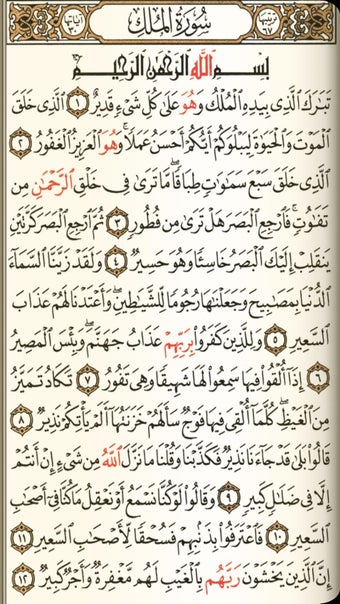 ترتيبها ٦٧ سُورَةُ الْمُلْكِ آياتها ٣٠
بِسْمِ اللَّهِ الرَّحْمَٰنِ الرَّحِيمِ
تَبَارَكَ الَّذِي بِيَدِهِ الْمُلْكُ وَهُوَ عَلَىٰ كُلِّ شَيْءٍ قَدِيرٌ ١ الَّذِي خَلَقَ
الْمَوْتَ وَالْحَيَوٰةَ لِيَبْلُوَكُمْ أَيُّكُمْ أَحْسَنُ عَمَلًا ۚ وَهُوَ الْعَزِيزُ الْغَفُورُ ٢
الَّذِي خَلَقَ سَبْعَ سَمَٰوَاتٍ طِبَاقًا ۖ مَّا تَرَىٰ فِي خَلْقِ الرَّحْمَٰنِ مِن
تَفَٰوُتٍ ۖ فَارْجِعِ الْبَصَرَ هَلْ تَرَىٰ مِن فُطُورٍ ٣ ثُمَّ ارْجِعِ الْبَصَرَ كَرَّتَيْنِ
يَنقَلِبْ إِلَيْكَ الْبَصَرُ خَاسِئًا وَهُوَ حَسِيرٌ ٤ وَلَقَدْ زَيَّنَّا السَّمَاءَ
الدُّنْيَا بِمَصَٰبِيحَ وَجَعَلْنَٰهَا رُجُومًا لِّلشَّيَٰطِينِ ۖ وَأَعْتَدْنَا لَهُمْ عَذَابَ
السَّعِيرِ ٥ وَلِلَّذِينَ كَفَرُوا بِرَبِّهِمْ عَذَابُ جَهَنَّمَ ۖ وَبِئْسَ الْمَصِيرُ
٦ إِذَا أُلْقُوا فِيهَا سَمِعُوا لَهَا شَهِيقًا وَهِيَ تَفُورُ ٧ تَكَادُ تَمَيَّزُ
مِنَ الْغَيْظِ ۖ كُلَّمَا أُلْقِيَ فِيهَا فَوْجٌ سَأَلَهُمْ خَزَنَتُهَا أَلَمْ يَأْتِكُمْ نَذِيرٌ ٨
قَالُوا بَلَىٰ قَدْ جَاءَنَا نَذِيرٌ فَكَذَّبْنَا وَقُلْنَا مَا نَزَّلَ اللَّهُ مِن شَيْءٍ إِنْ أَنتُمْ
إِلَّا فِي ضَلَٰلٍ كَبِيرٍ ٩ وَقَالُوا لَوْ كُنَّا نَسْمَعُ أَوْ نَعْقِلُ مَا كُنَّا فِي أَصْحَٰبِ
السَّعِيرِ ١٠ فَاعْتَرَفُوا بِذَنبِهِمْ فَسُحْقًا لِّأَصْحَٰبِ السَّعِيرِ ١١
إِنَّ الَّذِينَ يَخْشَوْنَ رَبَّهُم بِالْغَيْبِ لَهُم مَّغْفِرَةٌ وَأَجْرٌ كَبِيرٌ ١٢